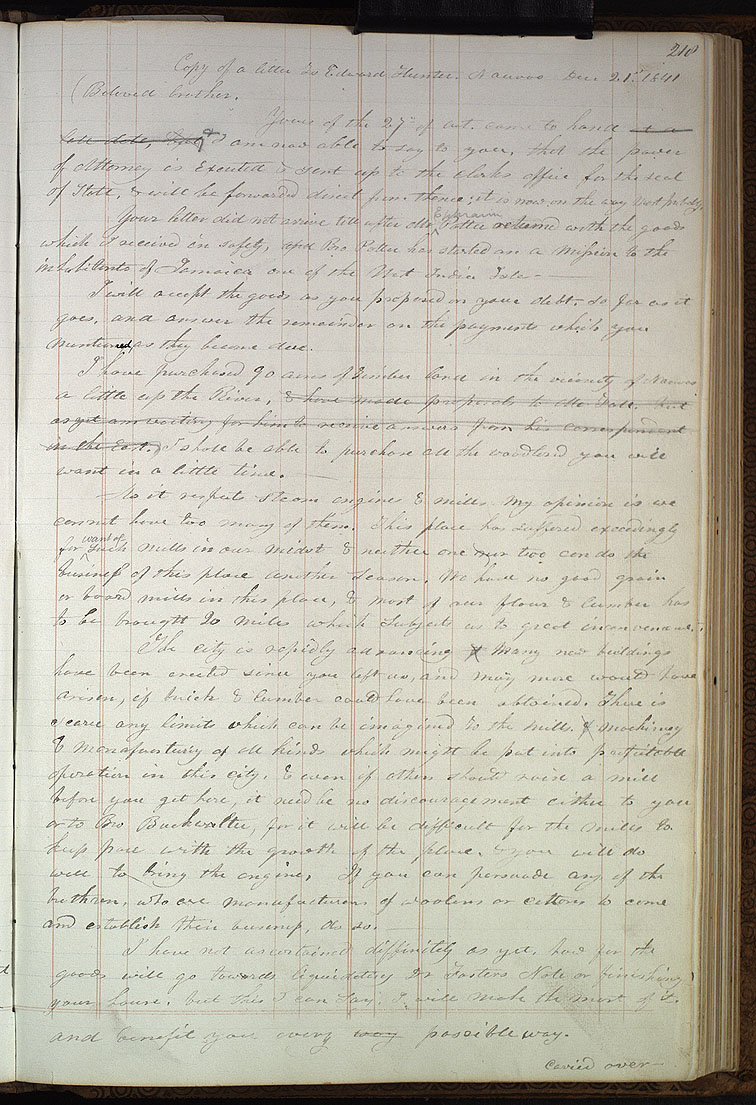 210
Copy of a letter To Edward Hunter. Nauvoo Dec 21st 1841
Beloved brother,
Yours of the 27th of oct. came to hand at a
late date, & I am now able to say to you, that the power
of Attorney is Executed & sent up to the clerks office for the seal
of State, & will be forwarded direct from thence; it is now on the way most probably
Your letter did not arrive till after Mr Ephraim Potter returned with the goods
which I received in safety, and Bro Potter has started on a Mission to the
inhabitants of Jamaica one of the West India Isles —
I will accept the goods as you proposed on your debt, so far as it
goes, and answer the remainder on the payments which you
mentioned, as they become due.
I have purchased 90 acres of timber land in the vicinity of Nauvoo
a little up the River, & have made proposals to Mr but
as yet am waiting for him to receive answers from his correspondent
in the East. I shall be able to purchase all the woodland you will
want in a little time. —
— As it respects steam engines & mills. My opinion is we
cannot have too many of them. This place has suffered exceedingly
for want of such mills in our midst & neither one nor two can do the
business of this place another season. We have no good grain
or board mills in this place, & most of our flour & lumber has
to be brought 20 miles which subjects us to great inconvenience. —
The city is rapidly advancing & Many new buildings
have been erected since you left us, and many more would have
arisen, if brick & lumber could have been obtained. There is
scarce any limits which can be imagined to the mills & machinery
& manafactuiry of all kinds which might be put into profitable
operation in this city, & even if others should raise a mill
before you get here, it need be no discouragement either to you
or to Bro Buckwalter, for it will be difficult for the mills to
keep pace with the growth of the place, & you will do
well to bring the engine, If you can persuade any of the
brethren, who are manufacturers of woolens or cottons to come
and establish their business, do so. —
I have not ascertained diffinitely as yet, how far the
goods will go towards liquidating Dr Fosters Note or finishing
your house, but this I can say, I will make the most of it
and benefit you every way possible way.
Carried over —